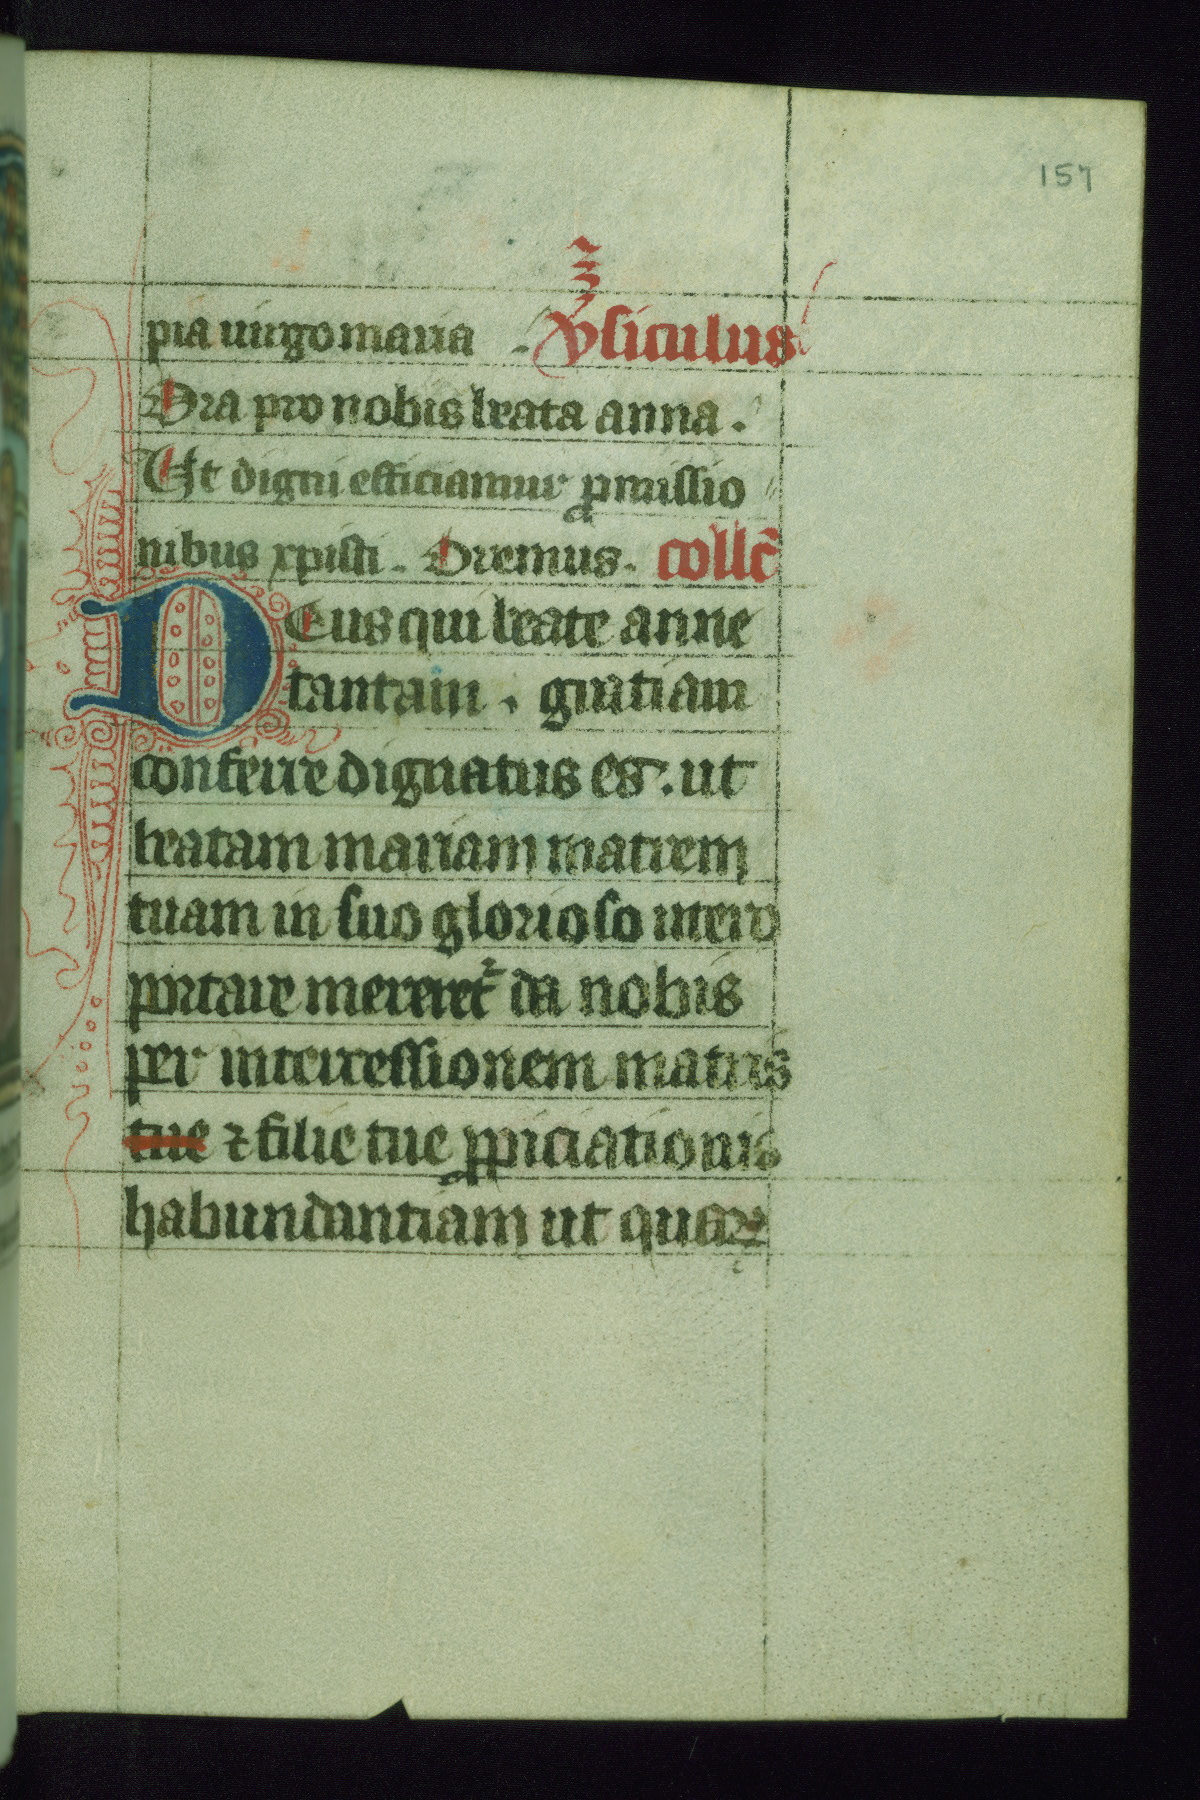 157
pia uirgo maria . v̾siculus
Ora pro nobis beata anna .
Ut digni efficiamur ꝓmissio
nibus xpisti . Oremus . collc̄
Deus qui beate anne
tantam . gratiam
conferre dignatus es . ut
beatam mariam matrem
tuam in suo glorioso utero
portare mereret᷑ da nobis
per intercessionem matris
tue ⁊ filie tue ꝓpiciationis
habundantiam ut quaꝝ